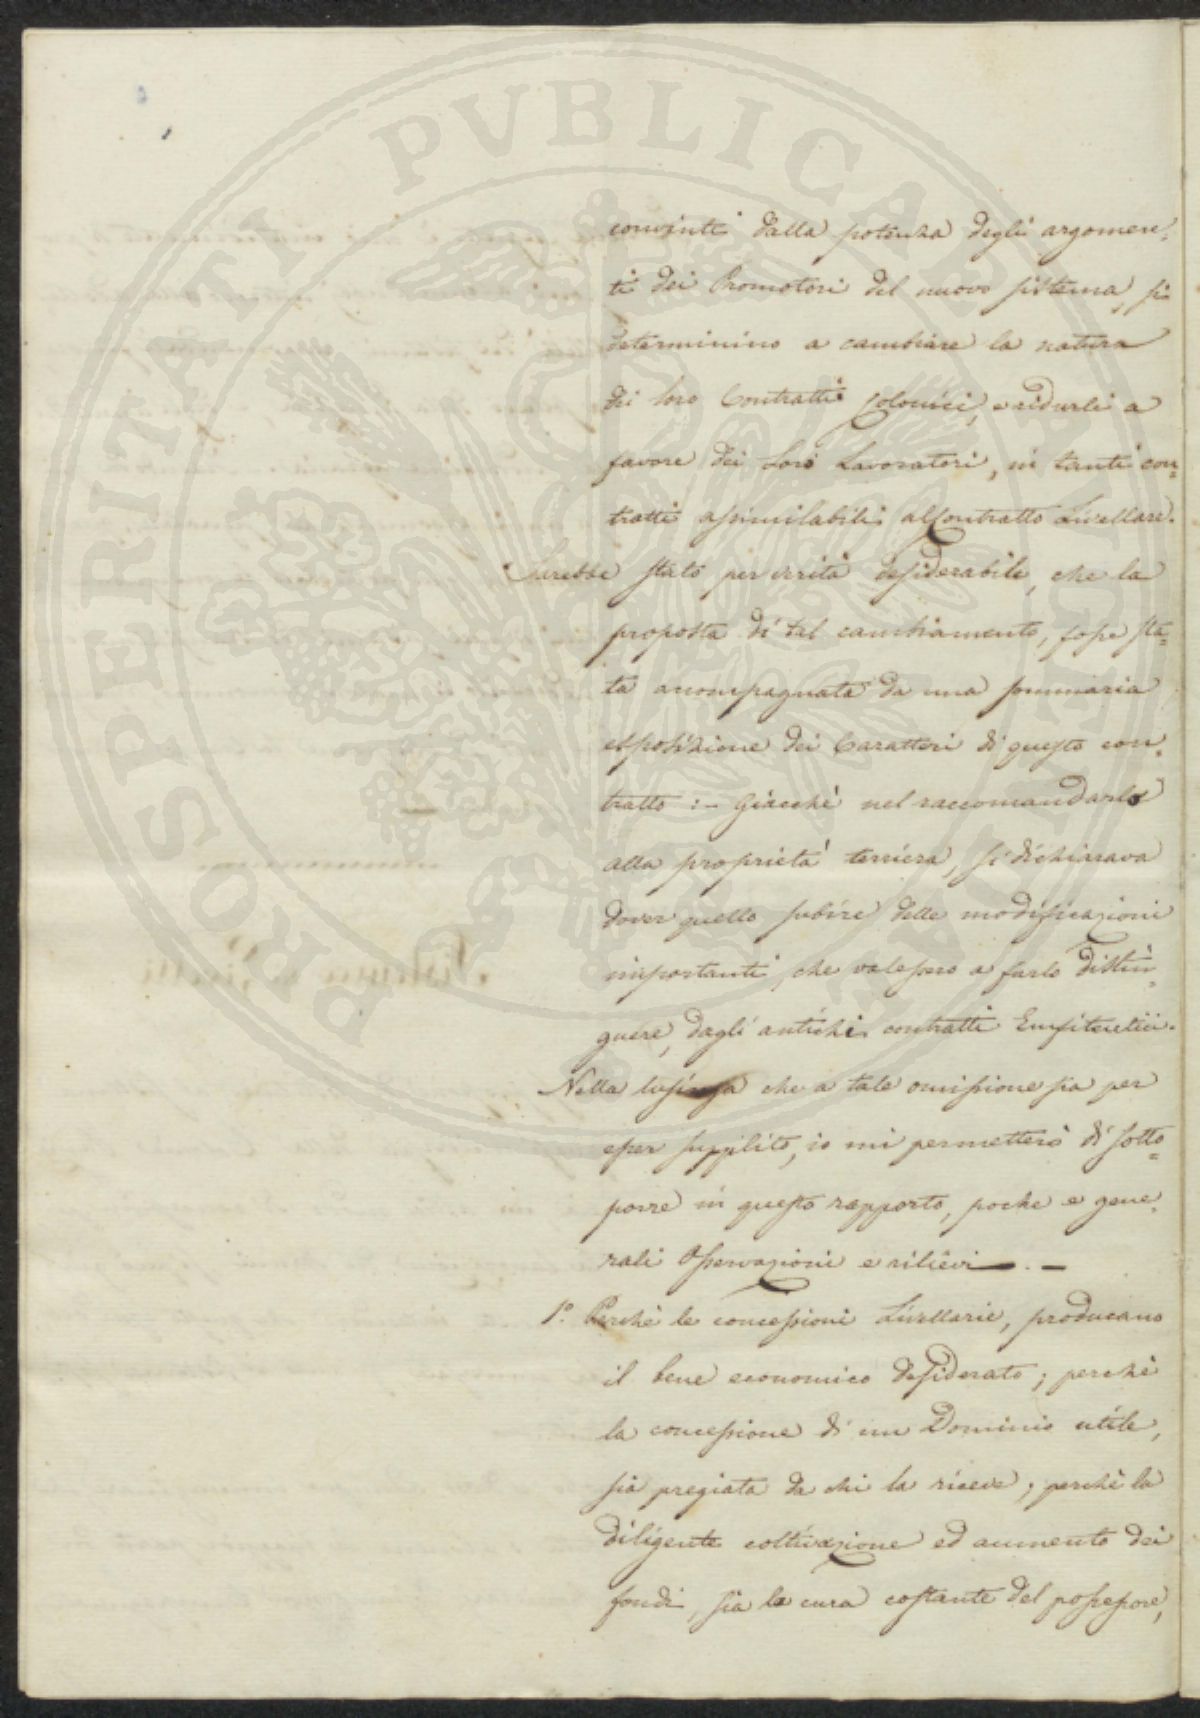 convinti dalla potenza degli argomen-
ti dei Promotori del nuovo sistema, si
determinino a cambiare la natura
dei loro Contratti Colonici, e ridurli a
favore dei Loro Lavoratori, in tanti con-
tratti assimilabili al Contratto Livellare.
Sarebbe stato per verità desiderabile, che la
proposta di tal cambiamento, fosse sta-
ta accompagnata da una sommaria
esposizione dei Caratteri di questo con-
tratto :- Giacchè nel raccomandarlo
alla proprietà terriera, si dichiarava
dover quello subire delle modificazioni
importanti, che valessero a farlo distin-
guere, dagli antichi contratti Enfiteutici.
Nella lusinga che a tale omissione sia per
esser supplito, io mi permetterò di sotto-
porre in questo rapporto, poche e gene-
rali Osservazioni e rilievi —. —
1.° Perchè le concessioni Livellarie, producano
il bene economico desiderato; perchè
la concessione di un Dominio utile,
sia pregiata da chi la riceve; perchè la
diligente coltivazione ed aumento dei
fondi, sia la cura costante del possessore,
PROSPERITATI PVBLICAE AVGENDAE